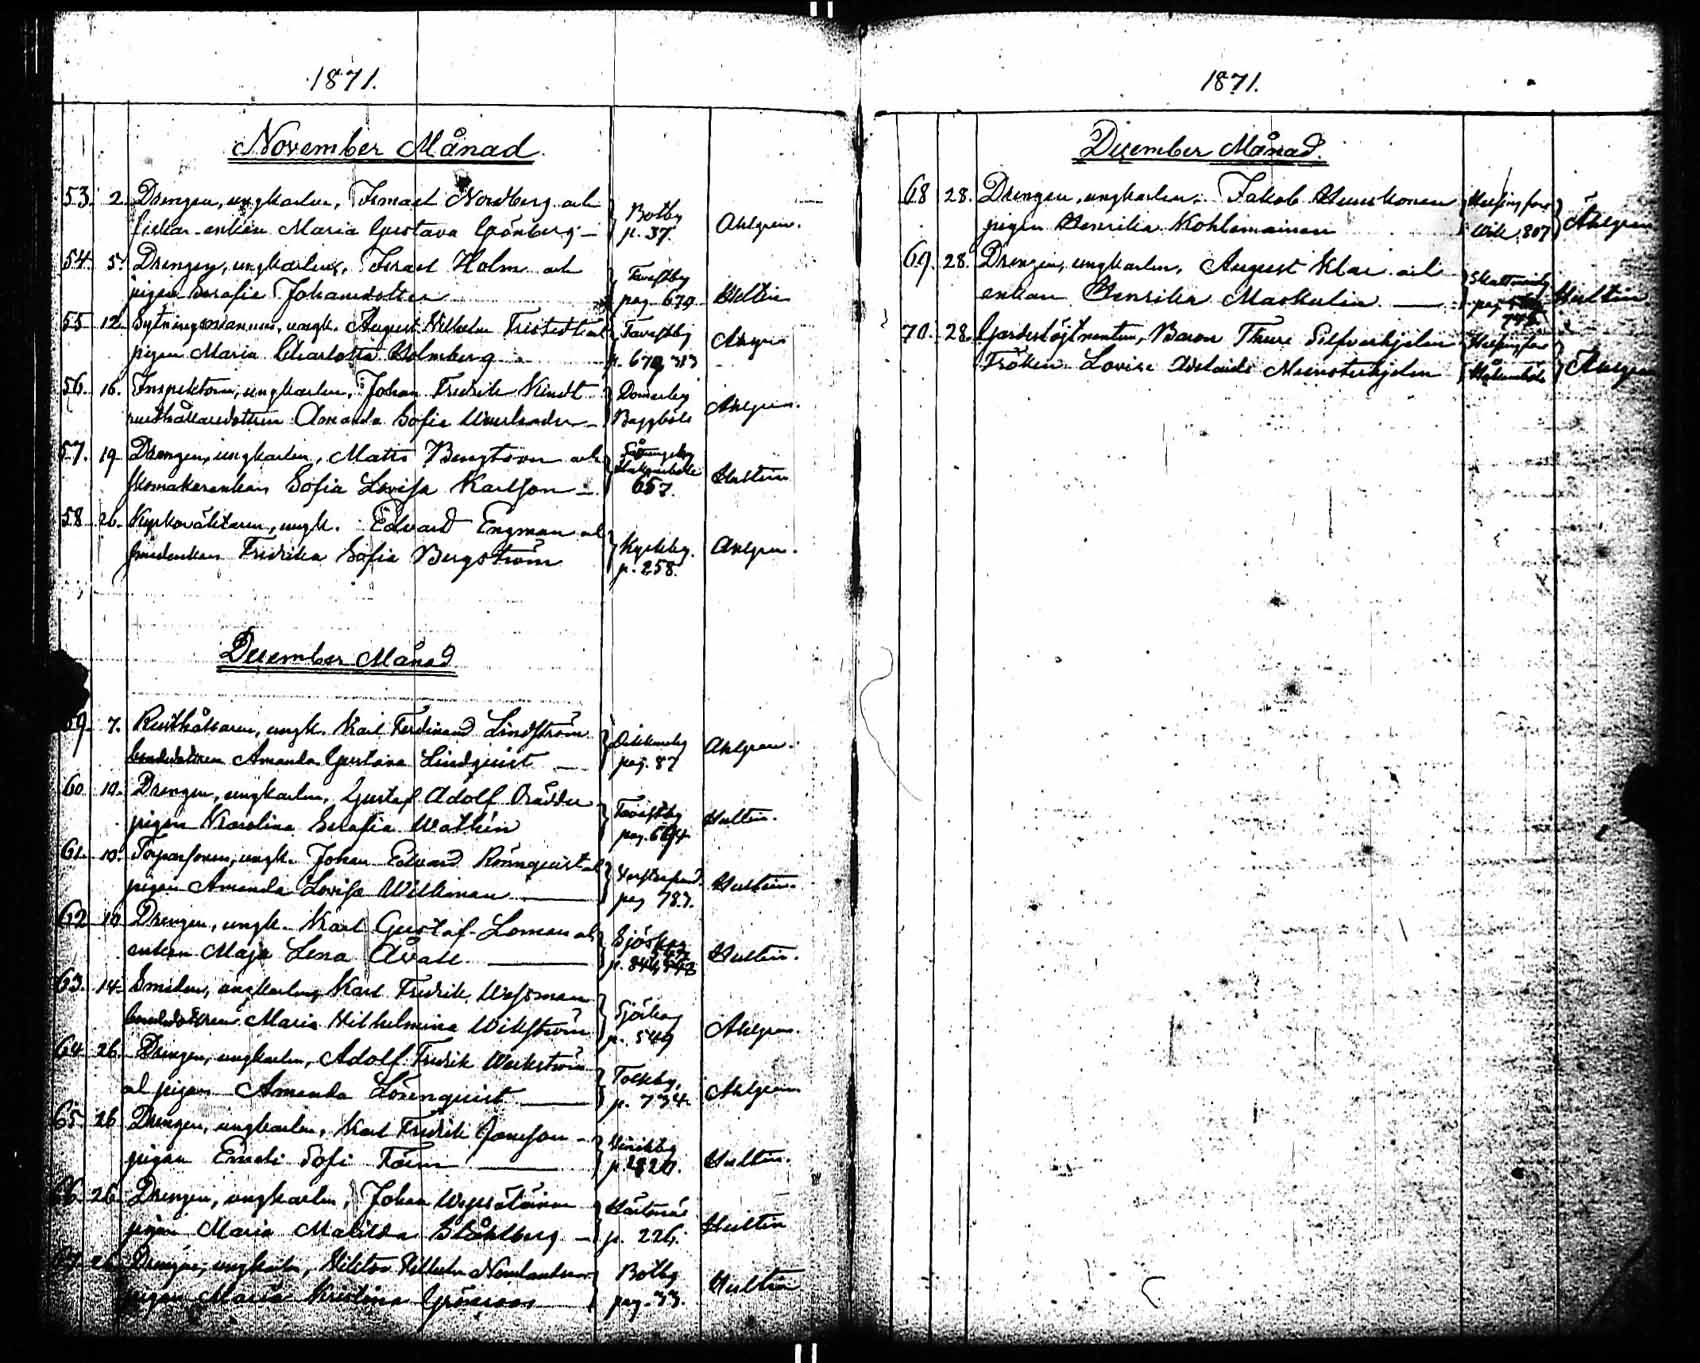 1871.
November Månad
53. 2. Drengen, ungkarlen, Ismael Nordberg och Botby Ahlgren.
fiskar-enkan Maria Gustava Grönberg p. 37.
54. 5. Drengen, ungkarlen, Israel Holm och Tavastby Hultin
pigan Serafia Johansdotter pag. 679.
55. 12. Sytningsmannen, ungk. August Vilhelm Tavastby Ahlgren
pigan Maria Charlotta Holmberg p. 679, 313
56. 16. Inspektoren, ungkarlen, Johan Fredrik Kindt Domarby Ahlgren.
rusthållaredottren Amanda Sofia Baggböle
57. 19. Drengen, ungkarlen, Matts Bengtson och Hultin
skomakarenkan Sofia Lovisa Karlson 657.
58. 26. Kyrkovaktaren, ungk. Edvard Engman och Kyrkby. Ahlgren.
smedenkan Fredrika Sofia Bergström p. 258.
December Månad
59. 7. Rusthållaren, ungk. Karl Ferdinand Lindström Dickursby Ahlgren.
bondedottren Amanda Gustava Lindquist pag. 87
60. 10. Drengen, ungkarlen, Gustaf Adolf Tavastby Hultin.
pigan Karolina Serafia Wathén pag. 694
61. 10. Torparsonen, ungk. Johan Edvard Rönnquist och Hultin.
pigan Amanda Lovisa Williman pag 783.
62. 10. Drengen, ungk. Karl Gustaf Loman och Sjöskog Hultin.
enkan Maja Lena p.
63. 14. Smeden, ungkarlen, Karl Fredrik Wessman Sjöskog Ahlgren.
bondedottren Maria Vilhelmina Wikström p. 549
64. 26. Drengen, ungkarlen, Adolf Fredrik Weckström Tolkby. Ahlgren
och pigan Amanda Lönnquist p. 734
65. 26 Drengen, ungkarlen, Karl Fredrik Hultin.
pigan Emeli Sofi p.
66. 26. Drengen, ungkarlen, Johan Mårtensb. Hultin
pigan Maria Matilda Ståhlberg p. 226.
67. 26. Drengen, ungkarlen, Viktor Vilhelm Botby Hultin
pigan Maria Kristina Grönroos pag. 33.
1871.
December Månad.
68 28. Drengen, ungkarlen, Jakob Helsingfors Ahlgren
pigan Henrika Kohlemainen 807
69. 28. Drengen, ungkarlen, August Klar och Skattmansby Hultin
enkan Henrika Maskulin pag.
70. 28. Gardeslöjtnanten, Baron Thure Silfverhjelm Helsingfors Ahlgren
Fröken Lovise Adelaide Munsterhjelm Håkansböle